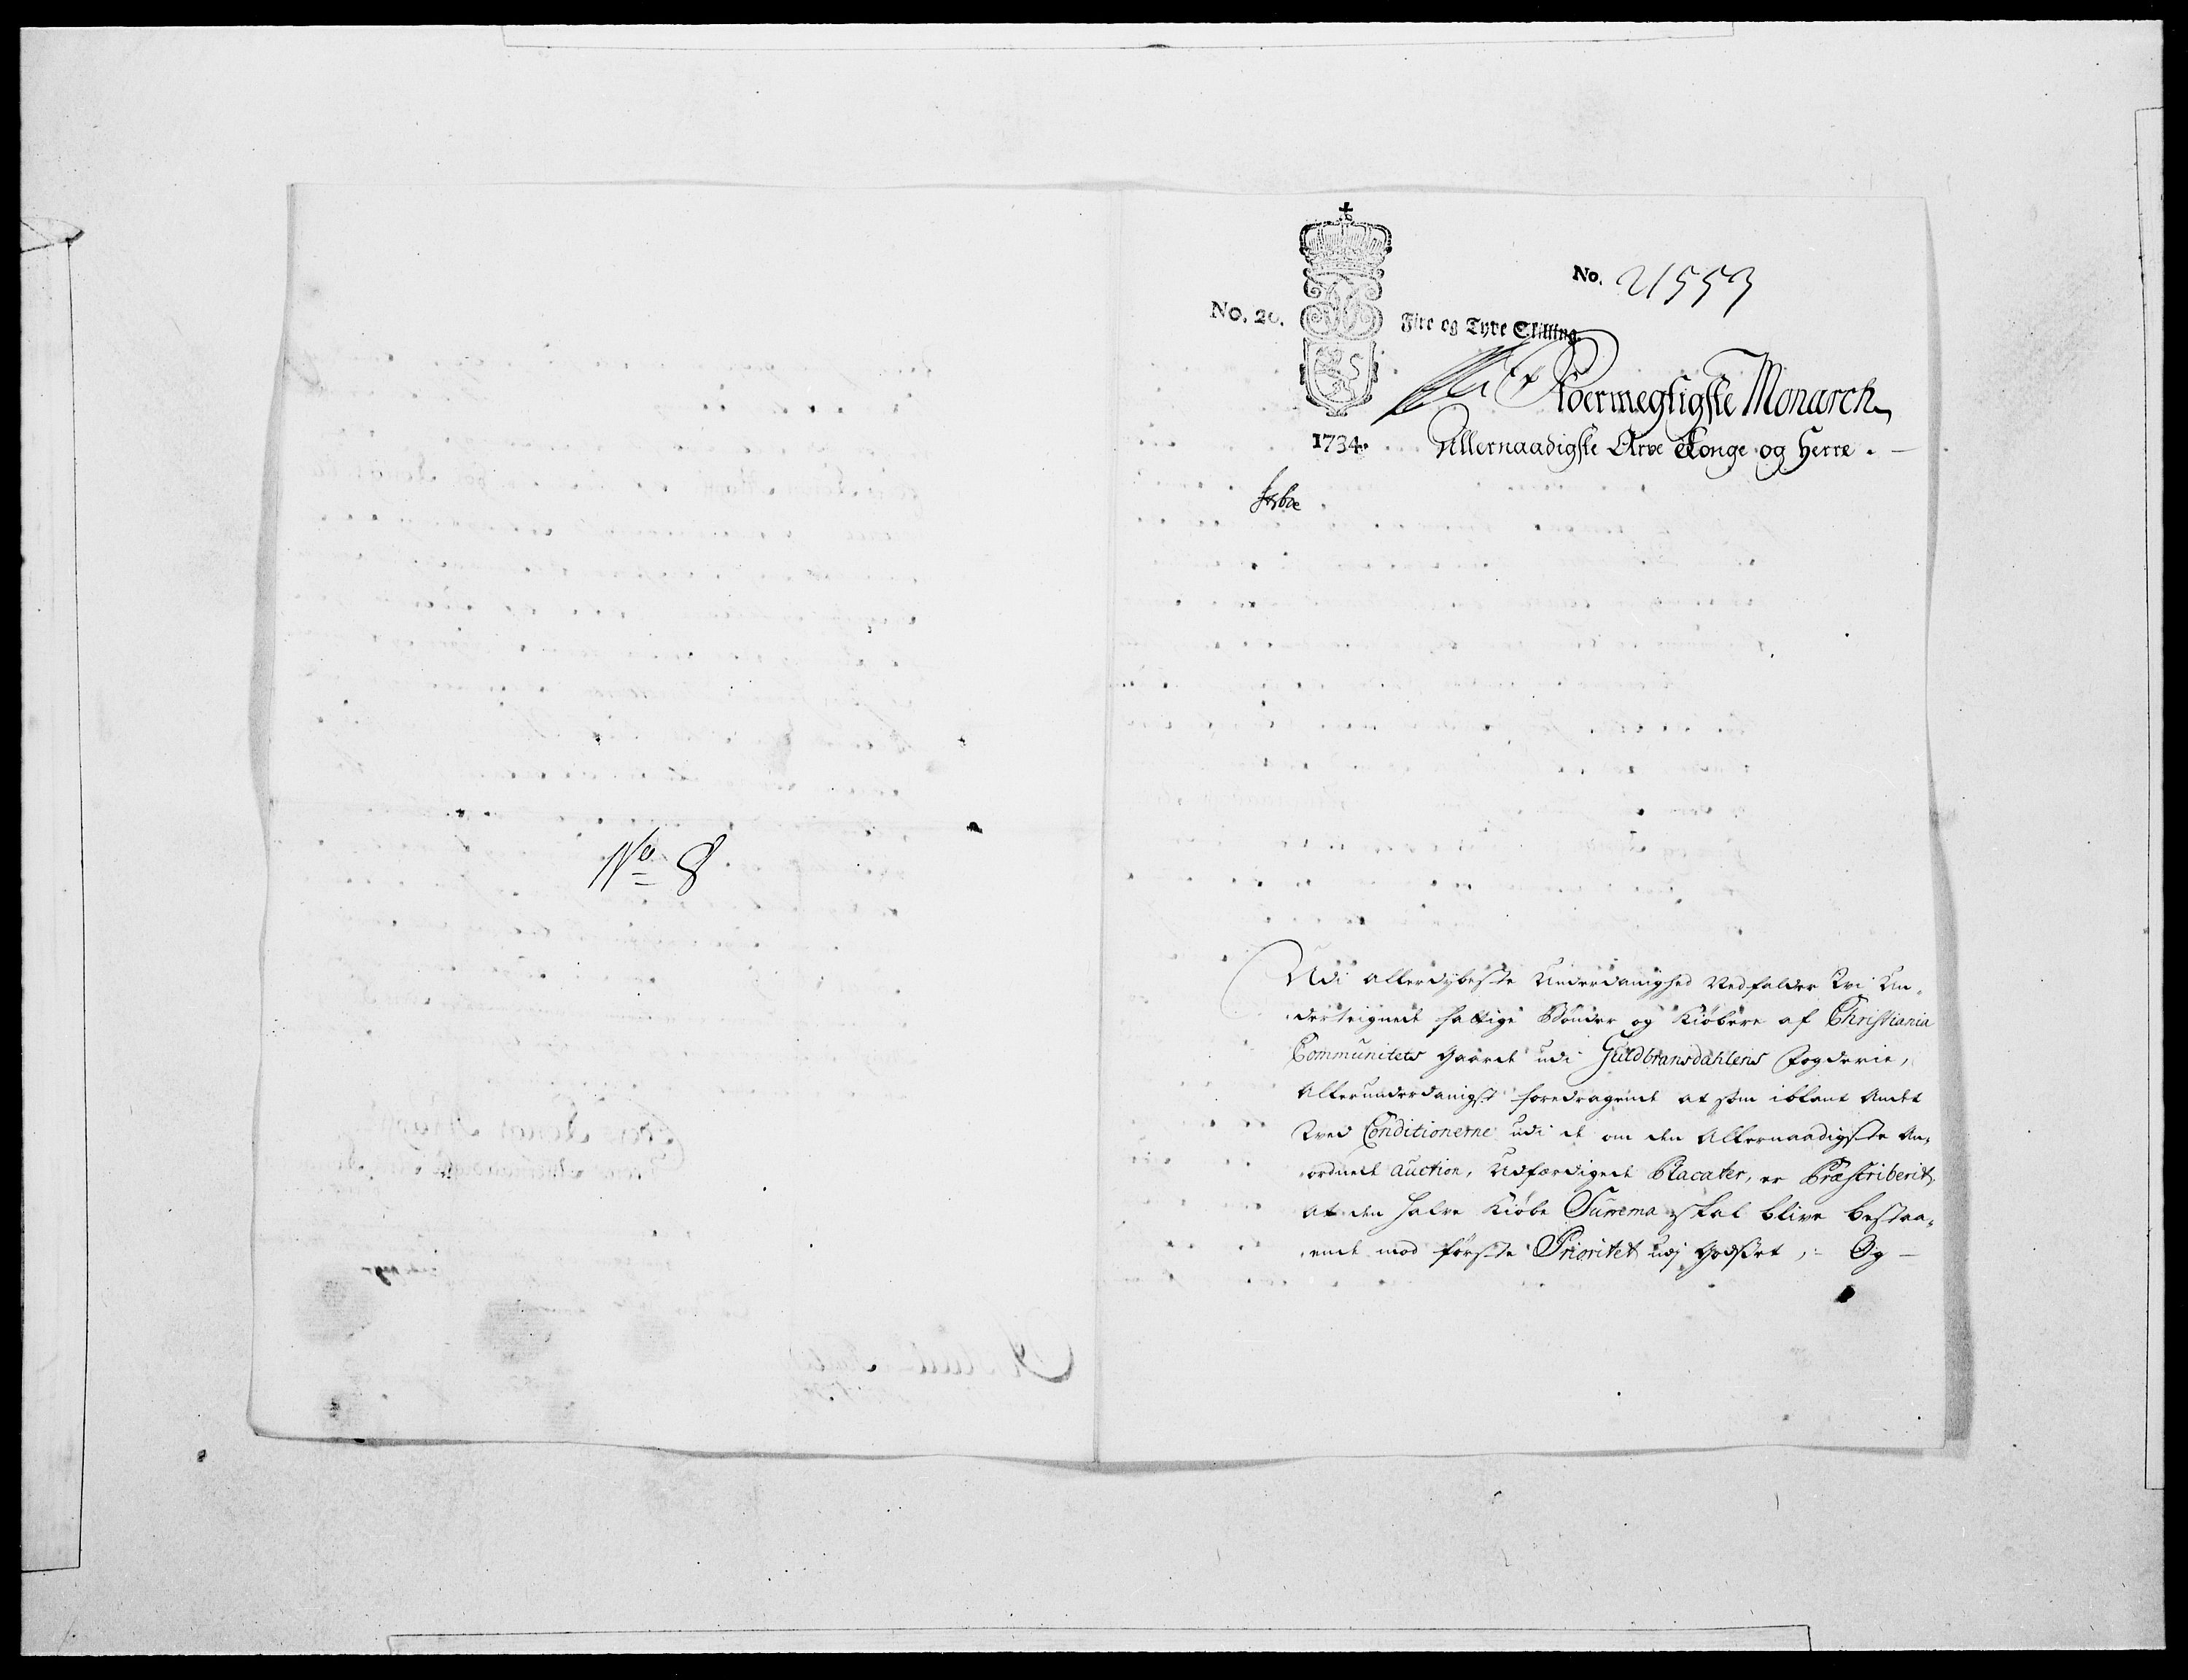 No. 8
No. 21553
No. 20.
Fire og Tyve Skilling.
Stor Adermegtigste Monarch
1734.
Allernaadigste Arve Konge og Herre.
Udi allerdybeste Underdanighed Nedfalder Vi Un-
derteignede fattige Bönder og Kiöbere af Christiania
Communitets Gaarde udi Guldbransdahlens Fogderie,
Allerunderdanigst foredragende at som iblant Andet
Ved Conditionerne udi de om den Allernaadigste An-
ordnede auction, Udfærdigede Placater, er Præscriberit,
at den halve Kiöbe Summa skal blive bestaa-
ende mod förste Prioritet udj Godset, :- Og -